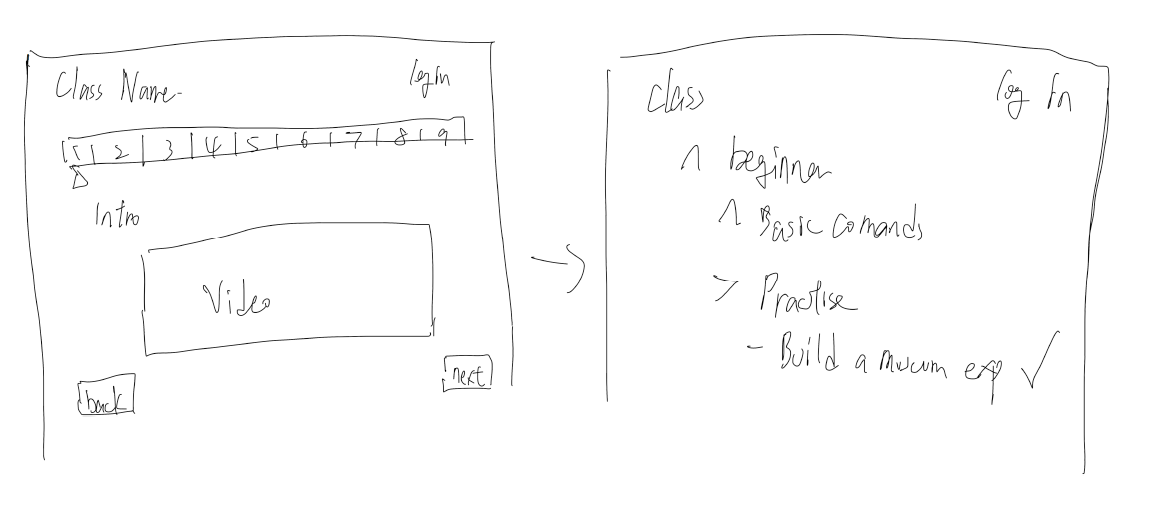 Class Name
login
1 2 3 4 5 6 7 8 9
Intro
Video
back
next
class
log in
beginner
Basic comands
Practise
- Build a exp ✓